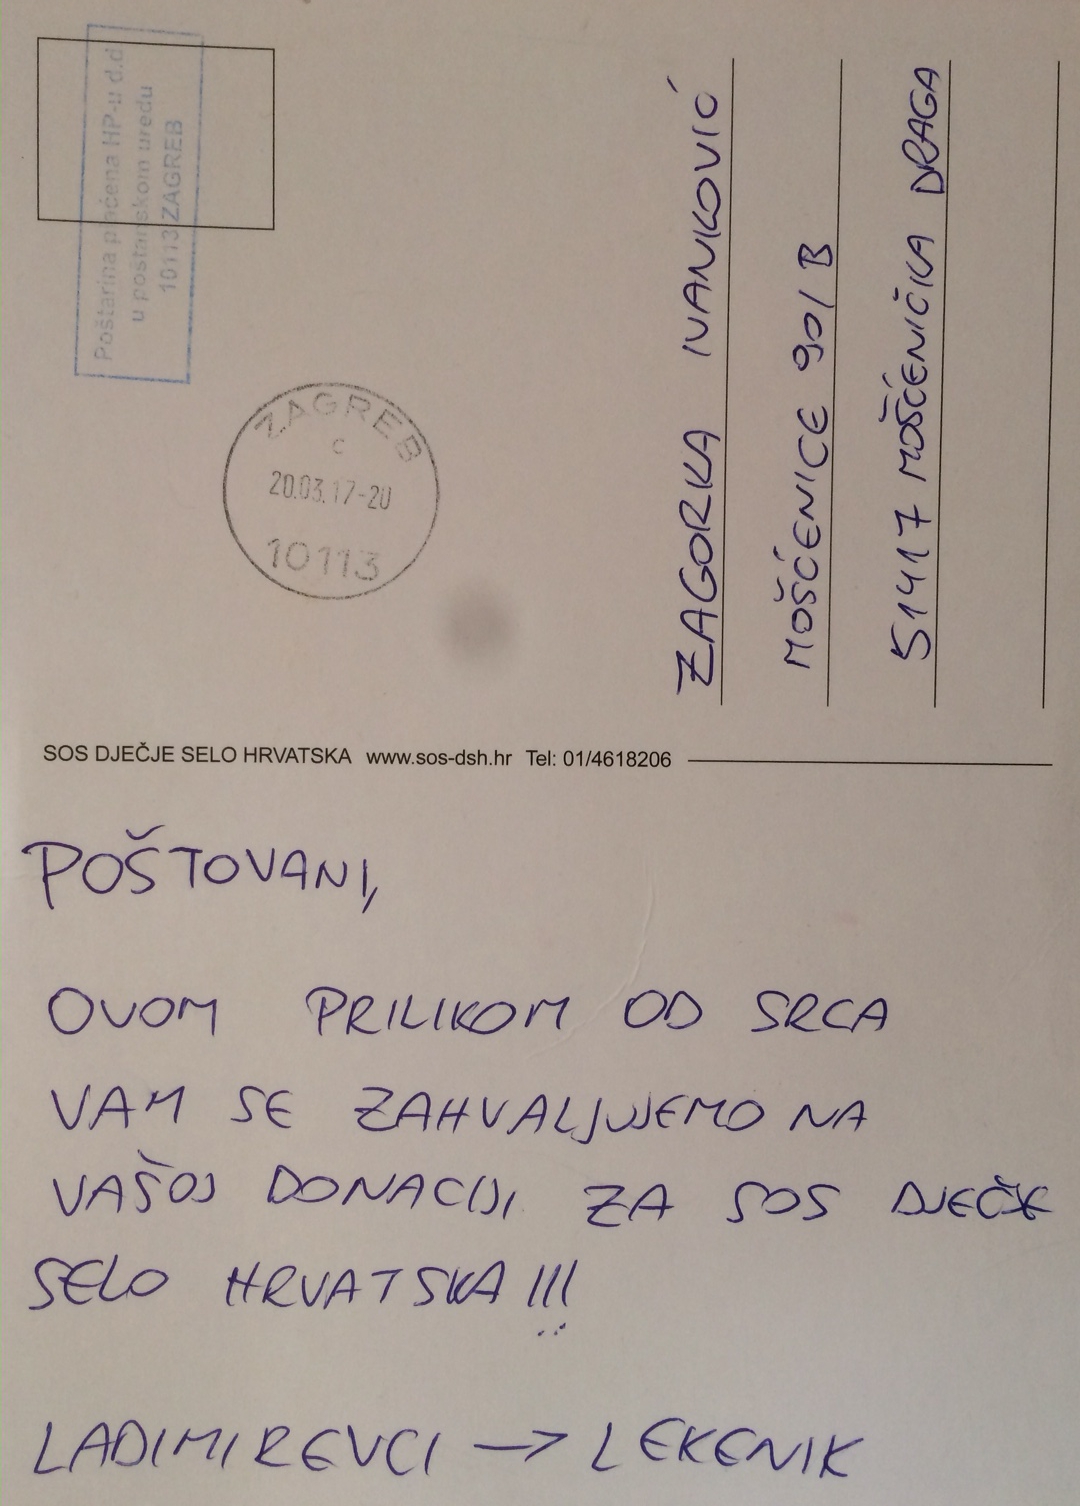 Poštarina plaćena HP-u d.d
u poštanskom uredu
10113 ZAGREB
ZAGREB
c
20.03.17-20
10113
ZAGORKA IVANKOVIĆ
MOŠĆENICE 90/B
51417 MOŠĆENIČKA DRAGA
SOS DJEČJE SELO HRVATSKA www.sos-dsh.hr Tel: 01/4618206
POŠTOVANI,
OVOM PRILIKOM OD SRCA
VAM SE ZAHVALJUJEMO NA
VAŠOJ DONACIJI ZA SOS DJEČJE
SELO HRVATSKA!!!
LADIMIREVCI → LEKENIK